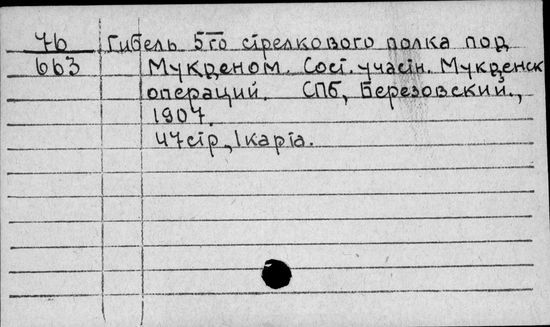 76 Гибель 5го стрелкового полка под
663 Мукденом. Сост. участн. Мукденск
операций. СПб, Березовский.,
1907.
47стр, 1карта.